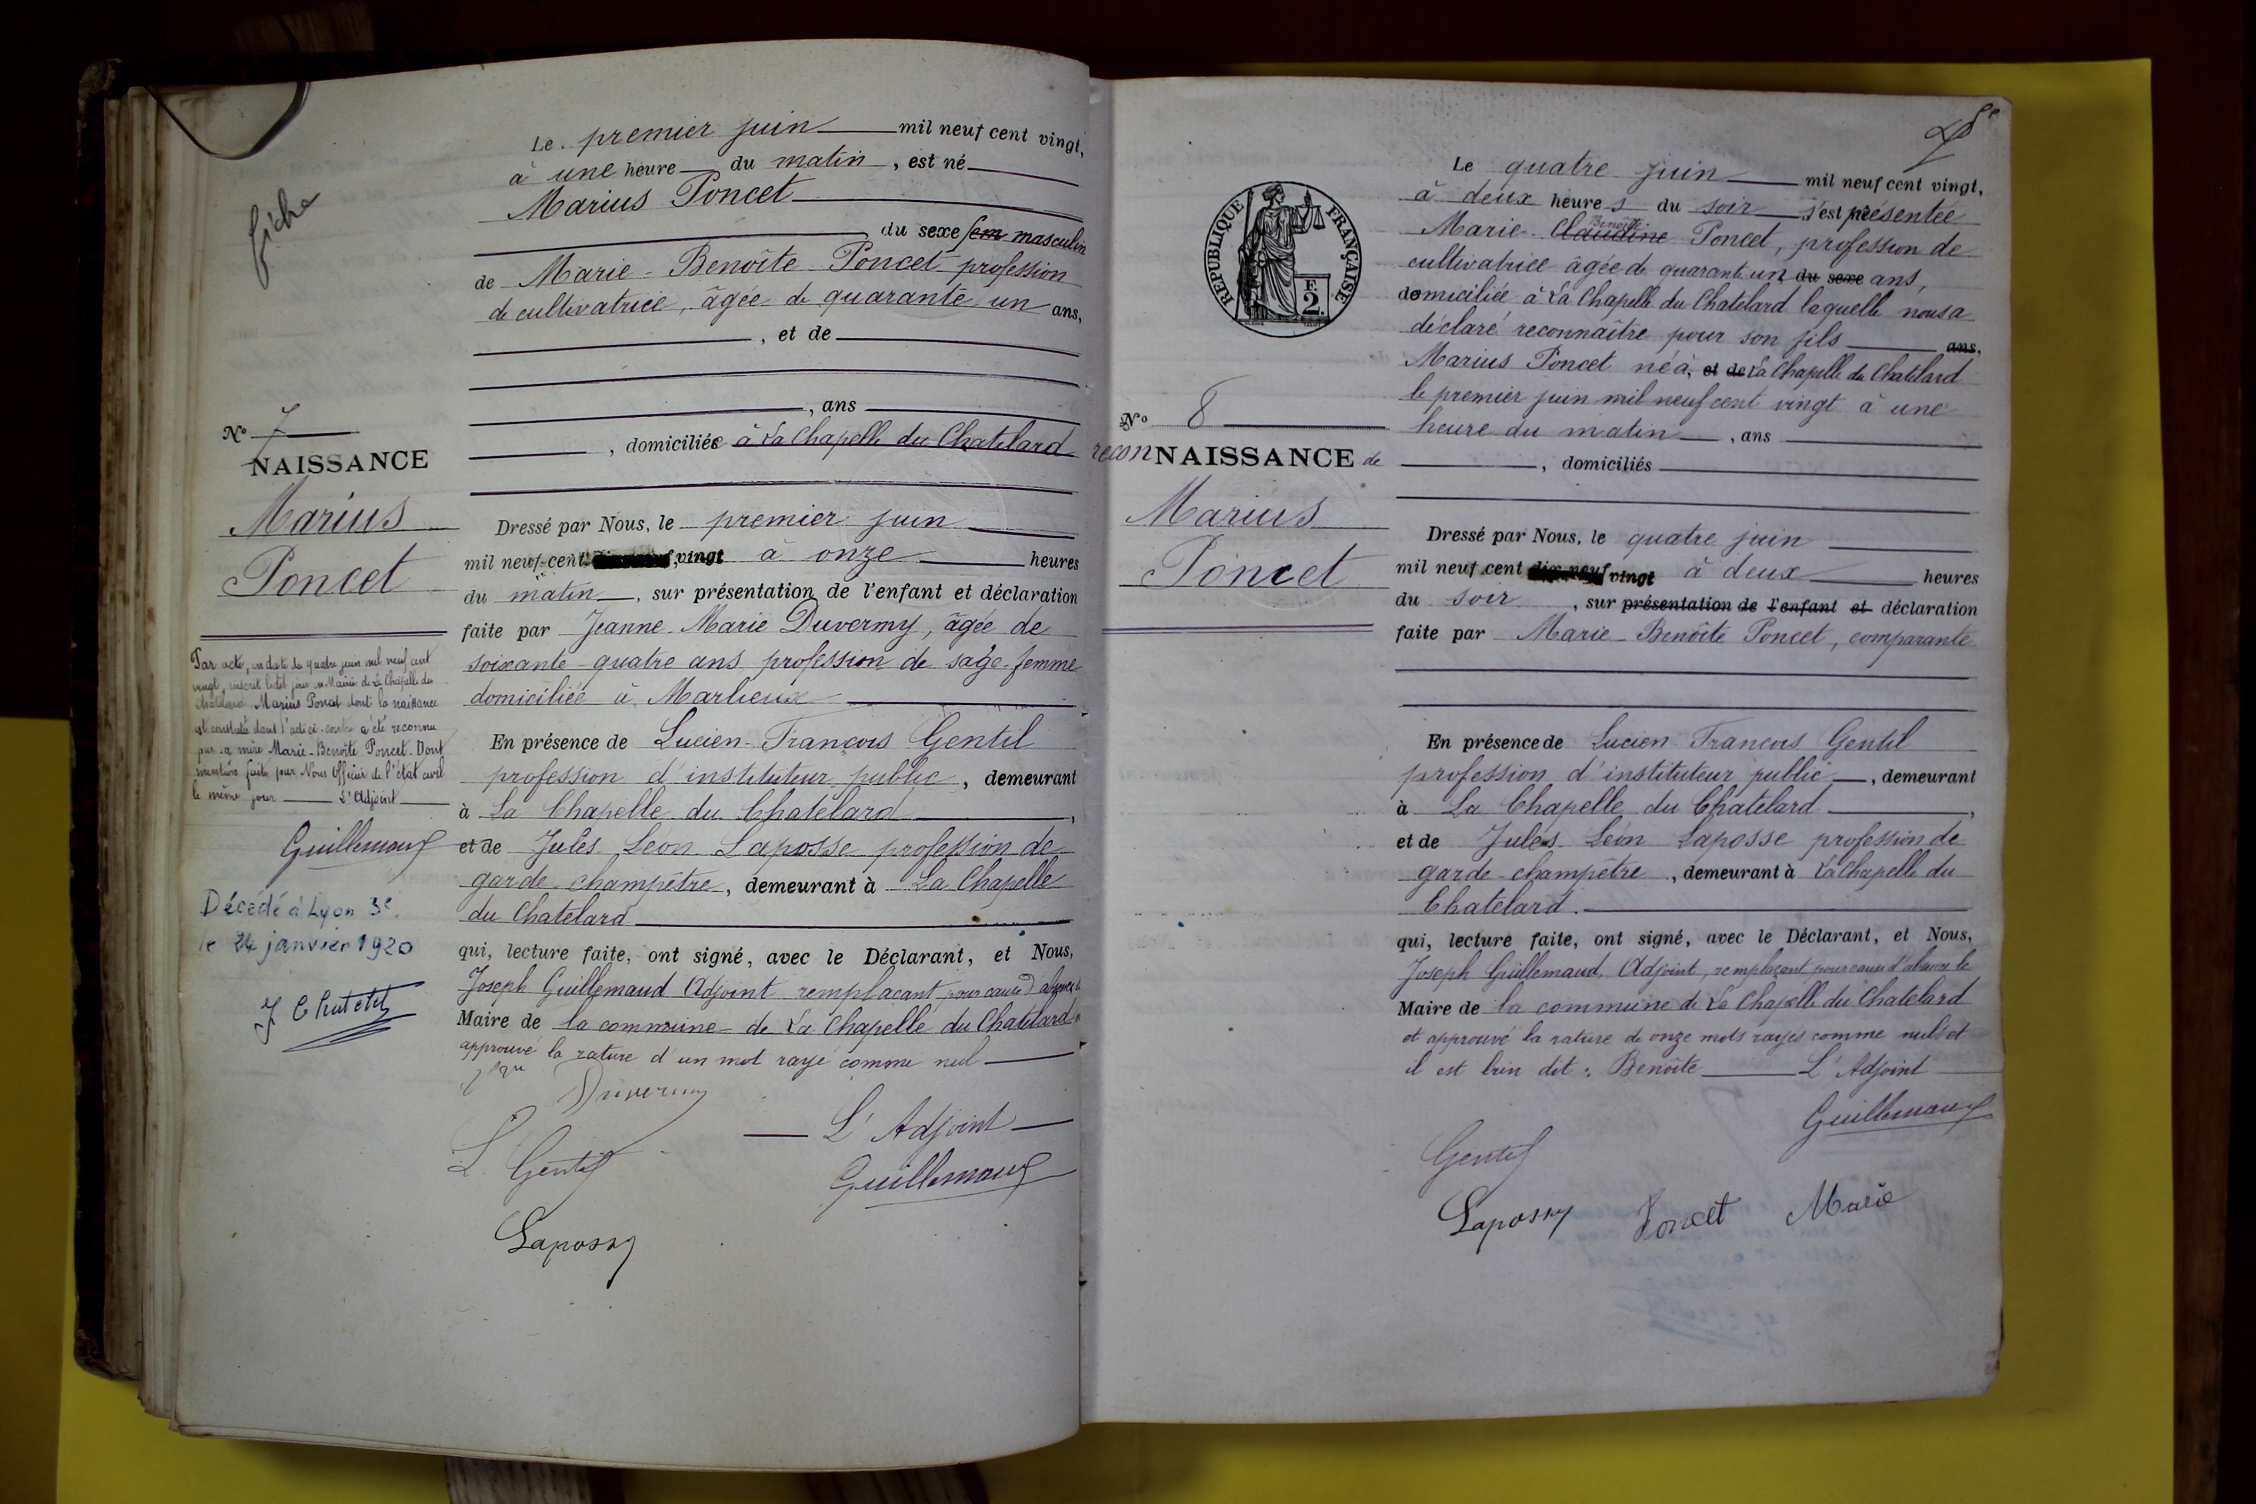 fiche
Le premier juin mil neuf cent vingt,
à une heure du matin, est né
Marius Poncet
du sexe fem masculin
de Marie-Benoîte Poncet profession
de cultivatrice, âgée de quarante un ans,
, et de
, ans
, domiciliée à La Chapelle du Chatelard
N° 7
NAISSANCE
Marius
Poncet
Dressé par Nous, le premier juin
mil neuf cent vingt à onze heures
du matin, sur présentation de l'enfant et déclaration
faite par Jeanne-Marie Duvermy, âgée de
soixante-quatre ans profession de sage-femme
domiciliée à Marlieux
En présence de Lucien-Francois Gentil
profession d'instituteur public, demeurant
à La Chapelle du Chatelard,
et de Jules Léon Laposse profession de
garde-champêtre, demeurant à La Chapelle
du Chatelard
qui, lecture faite, ont signé, avec le Déclarant, et Nous,
Joseph Guillemaud Adjoint remplacant pour cause d'absence le
Maire de la commune de La Chapelle du Chatelard
approuvé la rature d'un mot rayé comme nul
Duvermy
L'Adjoint
L. Gentil
Guillemaud
Laposse
Par acte, en date du quatre juin mil neuf cent
vingt, inscrit ledit jour en Mairie de La Chapelle du
Chatelard Marius Poncet dont la naissance
est constatée dans l'acte ci-contre a été reconnu
par sa mère Marie-Benoîte Poncet. Dont
mention faite par Nous Officier de l'état civil
le même jour L'Adjoint
Guillemaud
Décédé à Lyon 3e.
le 24 janvier 1920
Le quatre juin mil neuf cent vingt,
à deux heures du soir s'est présentée
Marie-Claudine Benoîte Poncet, profession de
cultivatrice âgée de quarante un du sexe ans,
domiciliée à La Chapelle du Chatelard laquelle nous a
déclaré reconnaître pour son fils ans,
Marius Poncet né à, et de La Chapelle du Chatelard
le premier juin mil neuf cent vingt à une
heure du matin, ans
, domiciliés
RÉPUBLIQUE FRANÇAISE
F.
2.
N° 8
reconNAISSANCE de
Marius
Poncet
Dressé par Nous, le quatre juin
mil neuf cent dix-neuf vingt à deux heures
du soir, sur présentation de l'enfant et déclaration
faite par Marie-Benoîte Poncet, comparante
En présence de Lucien Francois Gentil
profession d'instituteur public, demeurant
à La Chapelle du Chatelard,
et de Jules Léon Laposse profession de
garde-champêtre, demeurant à La Chapelle du
Chatelard.
qui, lecture faite, ont signé, avec le Déclarant, et Nous,
Joseph Guillemaud, Adjoint, remplaçant pour cause d'absence le
Maire de la commune de La Chapelle du Chatelard
et approuvé la rature de onze mots rayés comme nuls et
il est bien dit : Benoîte L'Adjoint
Guillemaud
Gentil
Laposse Poncet Marie